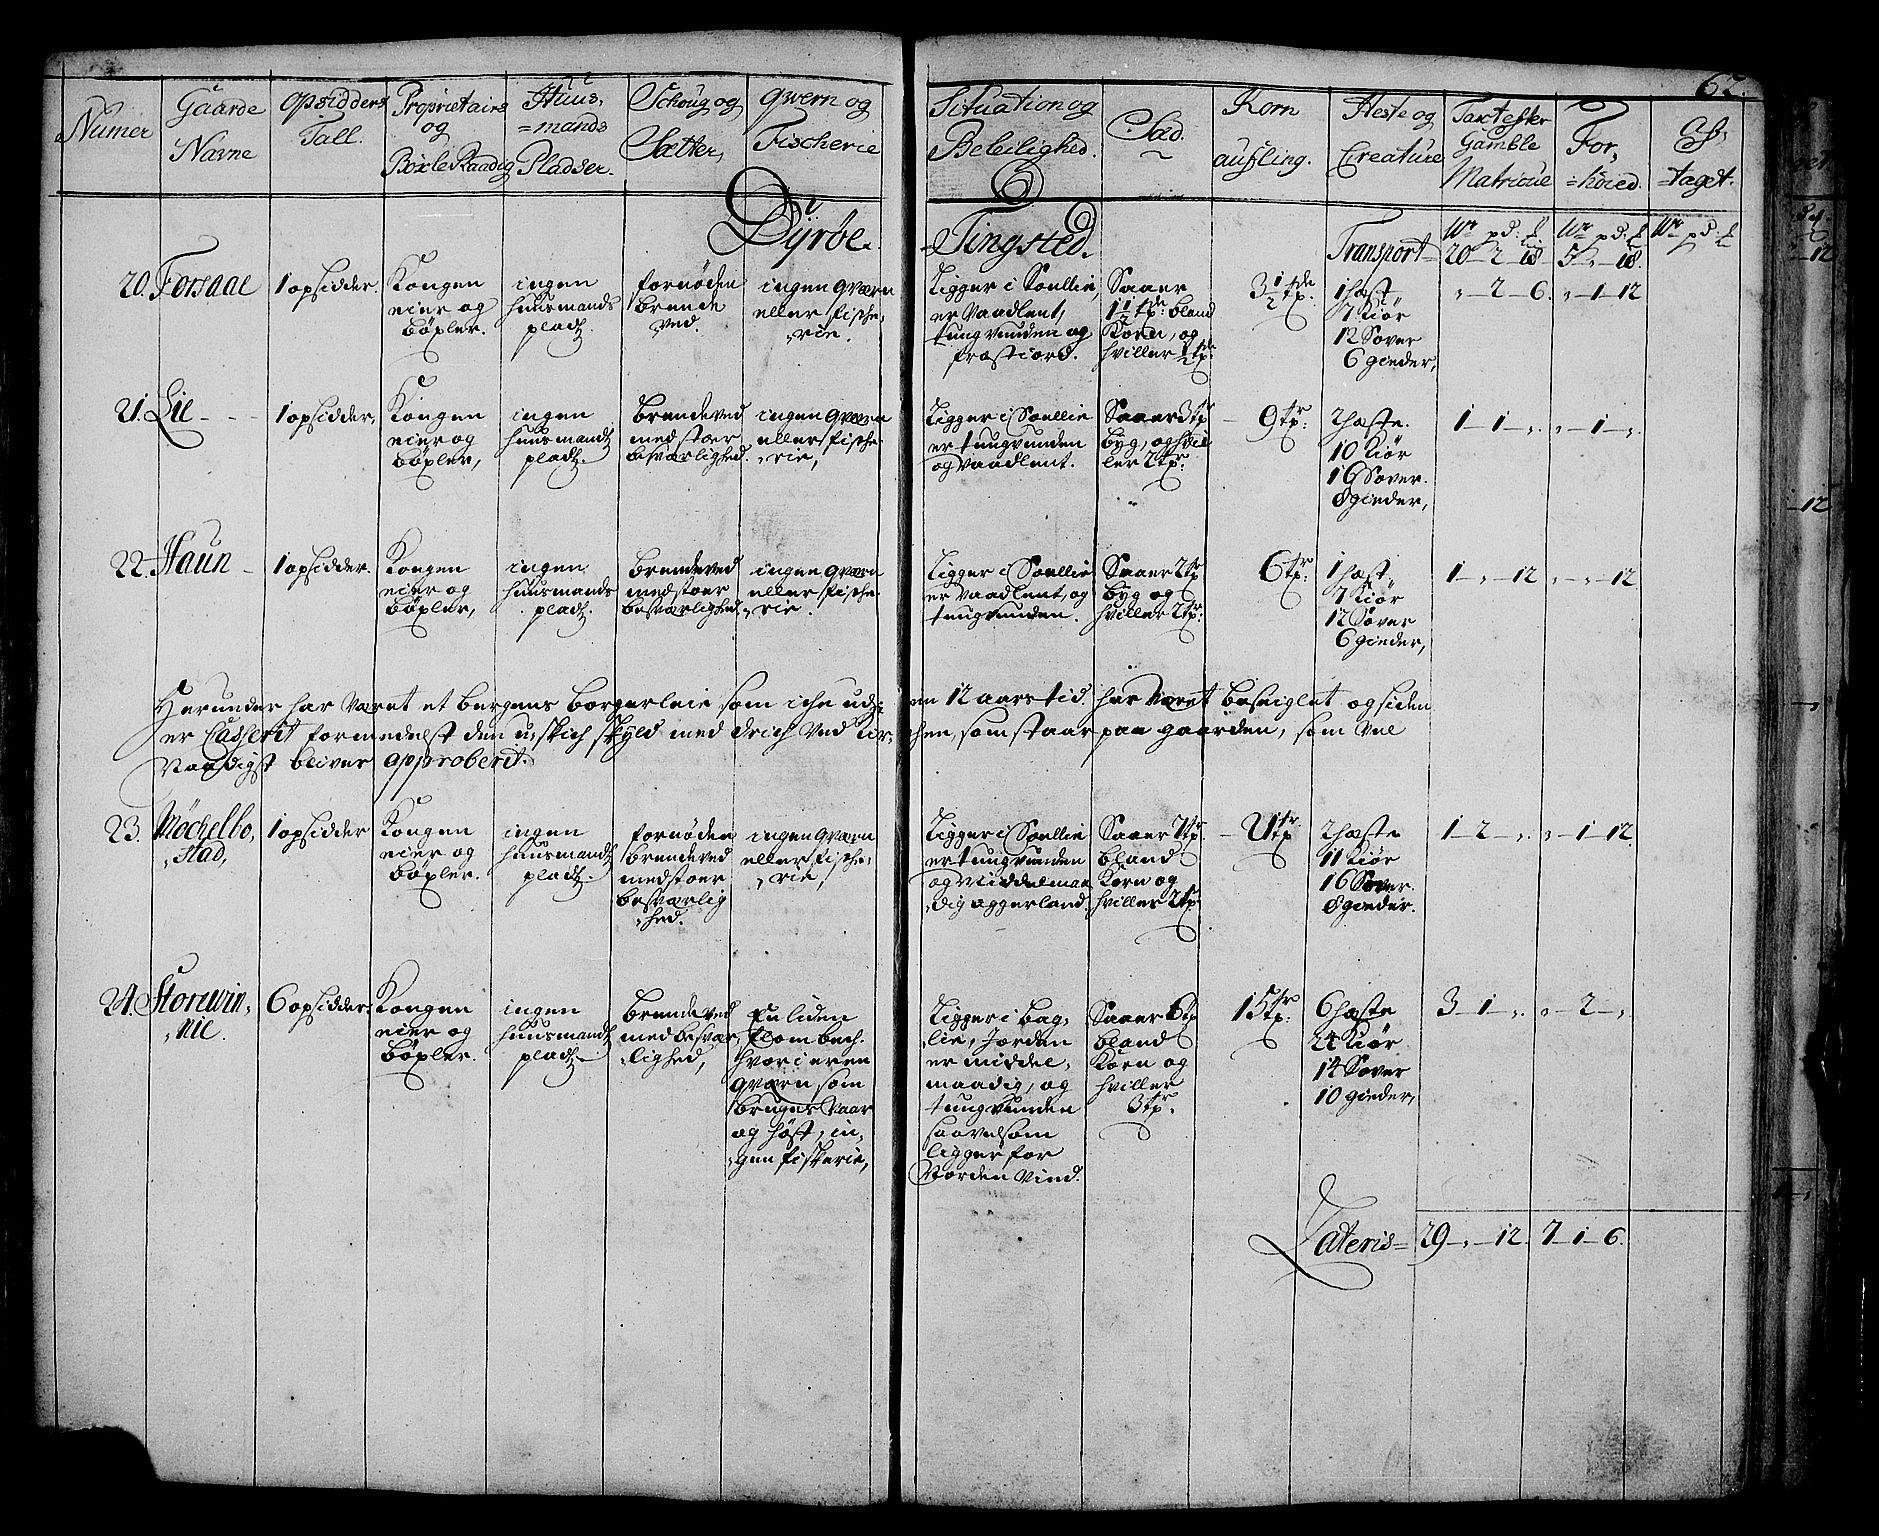 62.
Numer
Gaarde Navne
Opsidders Tall.
Proprietairs og Böxle Raadig
Huus=mands Pladser.
Schoug og Sætter,
Qwern og Fischerie
Situation og Beleilighed.
Sæd.
Korn aufling.
Heste og Creature
Taxt efter Gamble Matricue
For=höied.
Af=taget.
Dÿröe Tingsted.
Wr pd: £ Wr pd: £ Wr pd: £
Transport 20-2-18 5-"-18.
20. Forsaae
1 opsidder
Kongen
eier og
böxler.
ingen
huusmands
pladtz
fornöden
brende
ved.
ingen qværn
eller fische,
rie.
Ligger i Soellie,
er Vaadlent,
tungvunden og
frostiord.
Saaer
1 1/2 tde bland
Korn, og
hviller 1/2 tde
3 1/2 tde
1 hæst
7 Kiör
12 Sover
6 gieder,
"-2-6. "-1-12
21. Lie
1 opsidder,
Kongen
eier og
böxler,
ingen
huusmands
pladtz.
Brendeved
med stoer
besværlighed.
ingen qværn
eller fische
rie,
Ligger i Soellie
er tungvunden
og Vaadlent.
Saaer 3 tr
byg, og hvil
ler 2 tr
9 tr
2 hæste.
10 Kiör
16 Sover.
8 gieder,
1-1-". "-1-".
22. Haun
1 opsidder.
Kongen
eier og
böxler,
ingen
huusmands
pladtz
Brendeved
med stoer
besværlighed.
ingen qværn
eller fische
rie.
Ligger i Soellie
er Vaadlent, og
tungvunden.
Saaer 2 tr
byg og
hviller 2 tr
6 tr
1 hæst
7 Kiör
12 Sover
6 gieder,
1-"-12 "-"-12
Herunder har været et bergens borgerleie som iche uden 12 aars tid. har været beseiglet og siden
er Casserit formedelst den u, skich skyld med drich ved Kirchen, som staar paa gaarden, som Vel
Naadigst bliver approberit.
23. Möchelbo,
stad,
1 opsidder
Kongen
eier og
böxler.
ingen
huusmands
pladtz.
fornöden
brendeved
med stoer
besværlig
hed.
ingen qværn
eller fische,
rie,
Ligger i Soellie
er tungvunden
og Middelmaa
dig aggerland.
Saaer 7 tr
bland
Korn og
hviller 2 tr
21 tr
2 hæste
11 Kiör
16 Sover.
8 gieder.
1-2-". "-1-12.
24. Storewin,
nie.
6 opsidder.
Kongen
eier og
böxler.
ingen
huusmands
pladtz.
Brendeved
med besvær,
lighed,
En liden
flom bech.
hvor i er en
qværn som
bruges Vaar
og höst, in,
gen fiskerie,
Ligger i bag,
lie, Jorden
er middel,
maadig, og
tungvunden
saavelsom
ligger for
Norden vind.
Saaer 6 tr
bland
Korn og
hviller
3 tr.
15 tr
6 hæste
24 Kiör
14 Sover
10 gieder,
3-1-". "-2-"
Lateris= 29-"-12. 7-1-6.